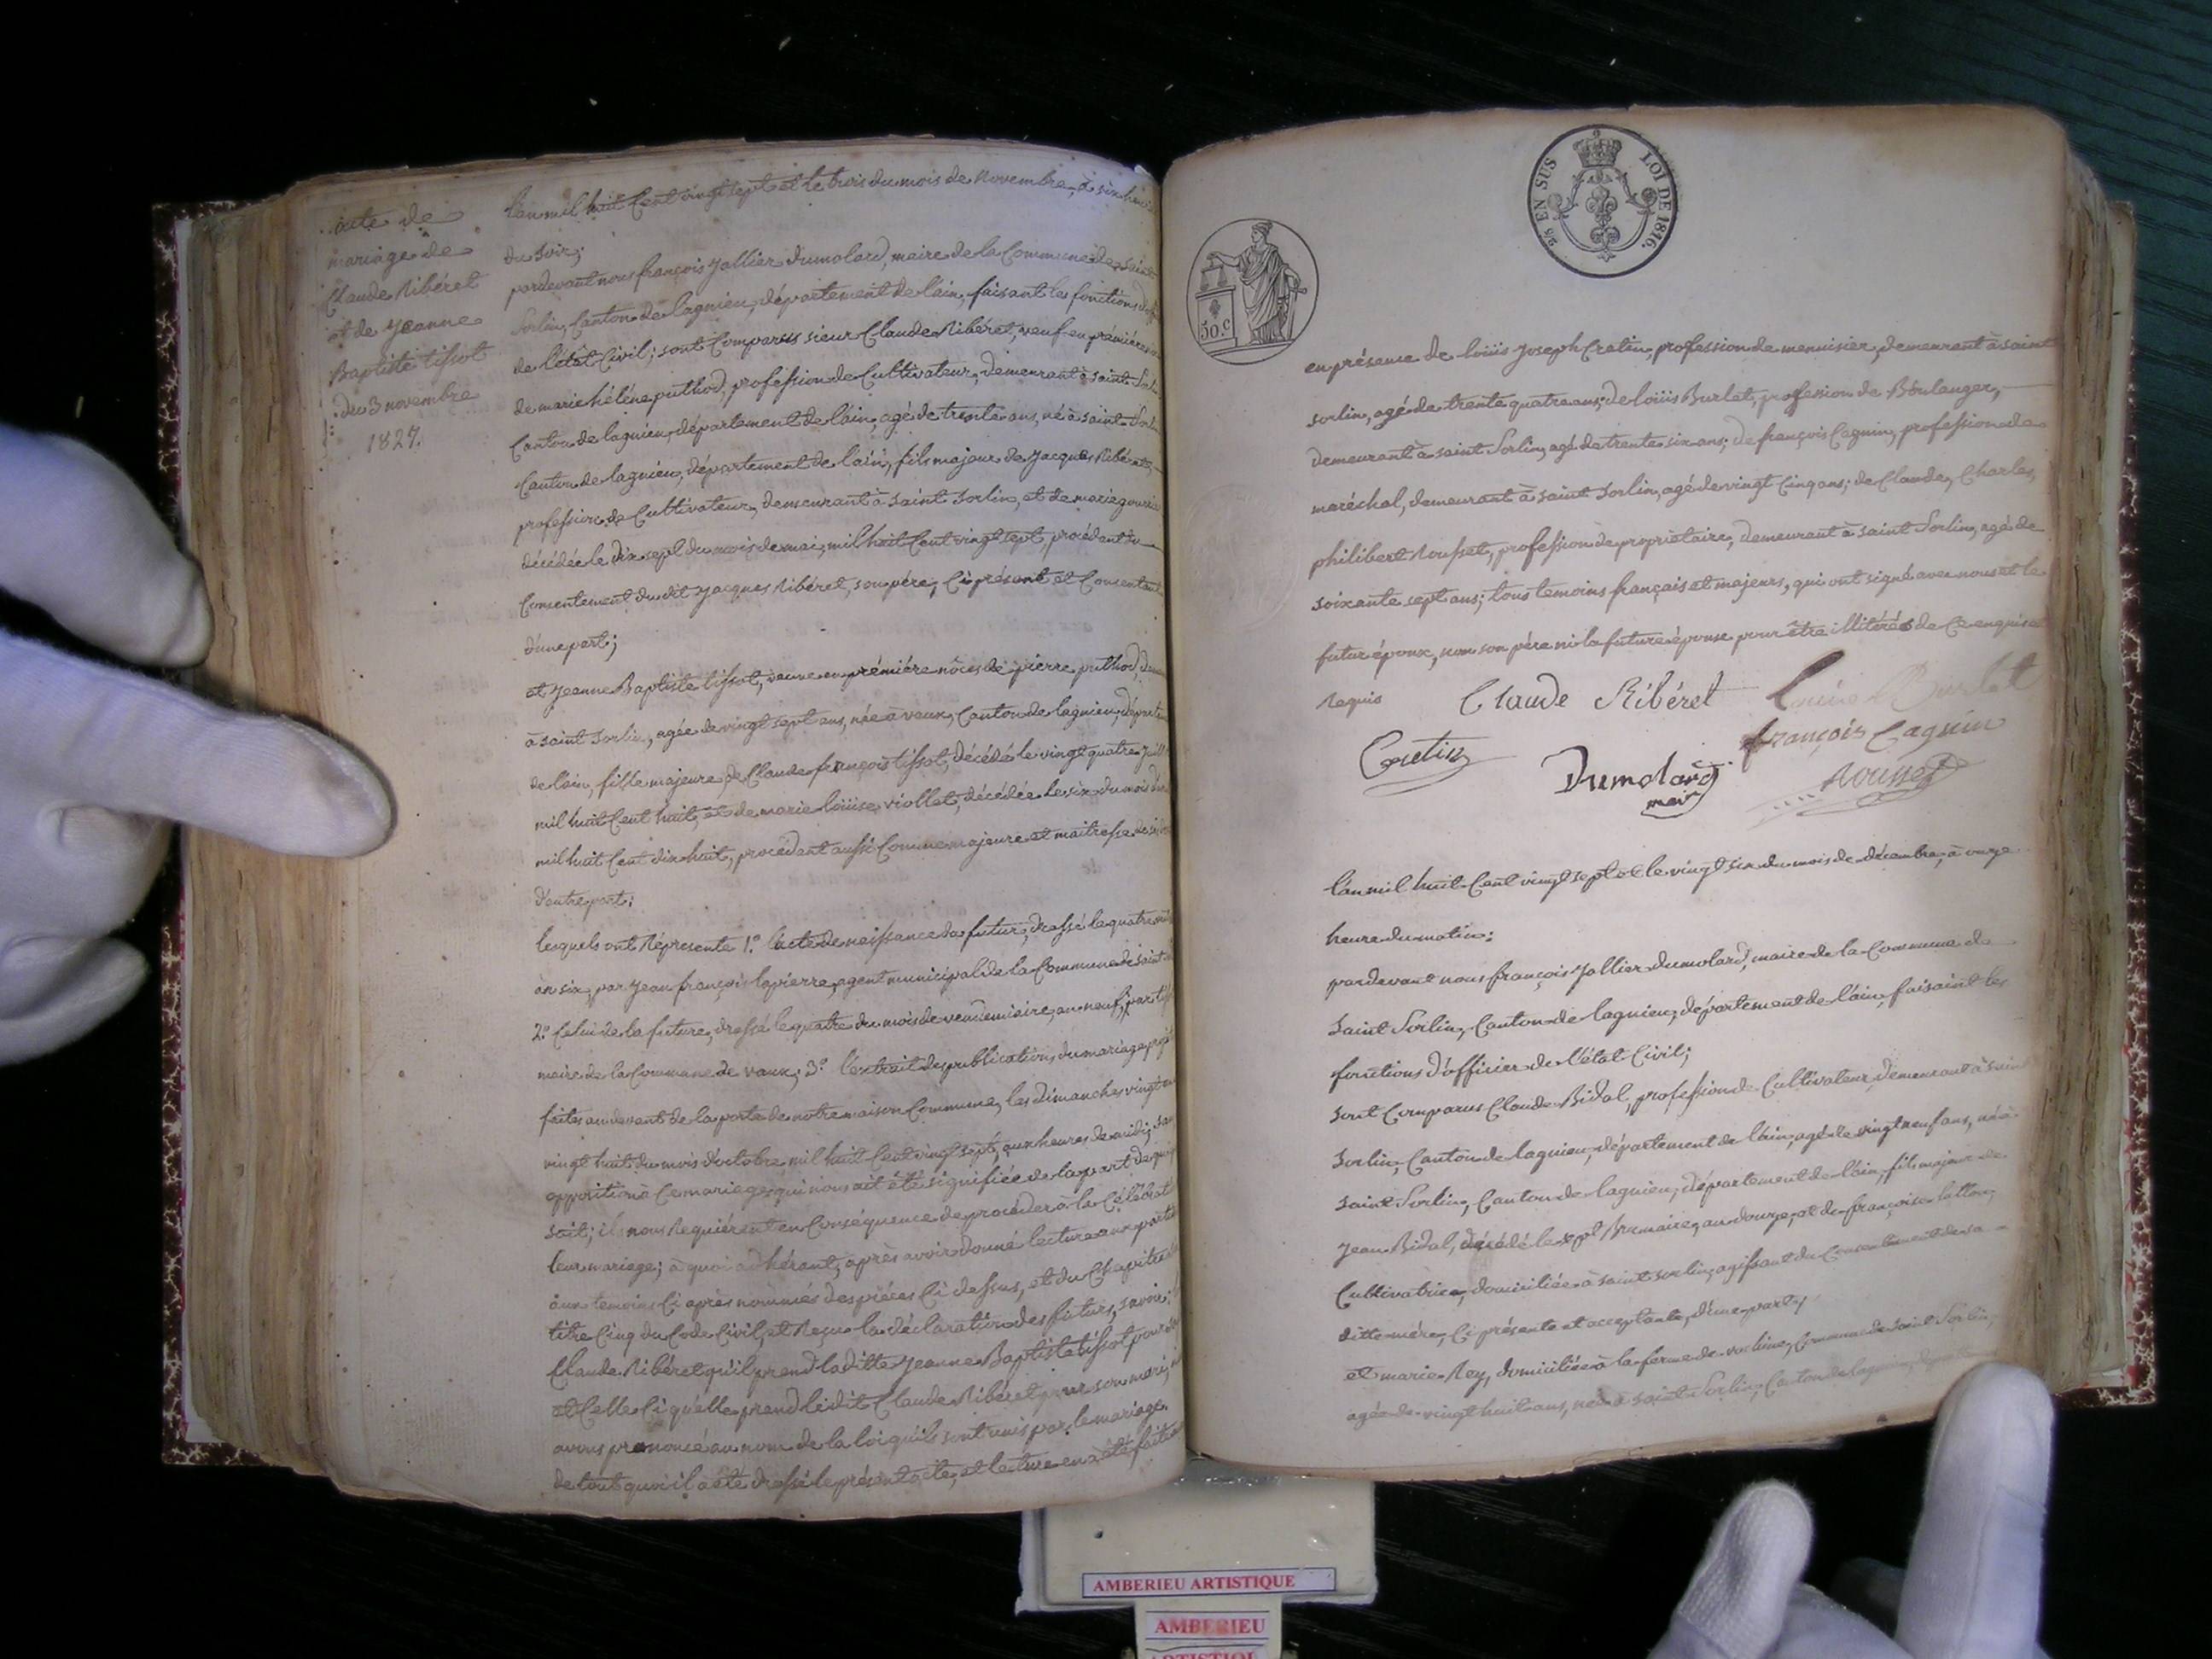 acte de
mariage de
Claude Ribéret
et de Jeanne
Baptiste tissot
du 3 novembre
1827.
l'an mil huit Cent vingt sept et le trois du mois de novembre, à six heures
du soir;
pardevant nous françois Jallier Dumolard, maire de la Commune de saint
Sorlin, Canton de lagnieu, département de l'ain, faisant les fonctions
de l'état Civil; sont Comparus sieur Claude Ribéret, veuf en première
de marie hélène puthod, profession de Cultivateur, demeurant à saint Sorlin
Canton de lagnieu, département de l'ain, agé de trente ans, né à saint Sorlin
Canton de lagnieu, département de l'ain, fils majeur de Jacques Ribéret,
profession de Cultivateur, demeurant à saint Sorlin, et de marie
décédée le dix sept du mois de mai, mil huit Cent vingt sept, procédant du
Consentement du dit Jacques Ribéret, son père, Ci présent et Consentant
d'une part;
et Jeanne Baptiste tissot, veuve en première nôces de pierre puthod,
à saint Sorlin, agée de vingt sept ans, née à vaux, Canton de lagnieu,
de l'ain, fille majeure de Claude françois tissot, décédé le vingt quatre
mil huit Cent huit, et de marie loüise viollet, décédée le six du mois
mil huit Cent dix huit, procédant aussi Comme majeure et maitresse de
d'autre part;
lesquels ont Représenté 1.° l'acte de naissance du futur, dressé le quatre
an six, par Jean françois lapierre, agent municipal de la Commune de saint
2.° Celui de la future, dressé le quatre du mois de vendémiaire, an neuf, par
maire de la Commune de vaux; 3.° l'extrait des publications du mariage
faites au devant de la porte de notre maison Commune, les dimanches vingt
vingt huit du mois d'octobre mil huit Cent vingt sept, aux heures de midi,
opposition à Ce mariage qui nous ait été signifiée de la part de
soit; ils nous Requièrent en Conséquence de procéder à la
leur mariage; à quoi adhérant, après avoir donné lecture aux parties
aux temoins Ci après nommés des pièces Ci dessus, et du Chapitre
titre Cinq du Code Civil, et Reçu la déclaration des futurs, savoir:
Claude Ribéret qu'il prend la ditte Jeanne Baptiste tissot pour
et Celle Ci qu'elle prend le dit Claude Ribéret pour son mari,
avons prononcé au nom de la loi qu'ils sont unis par le mariage.
de tout quoi il a été dressé le présent acte, et lecture en a été faite
2/5 EN SUS
LOI DE 1816.
50.c
en présence de loüis Joseph Cretin, profession de menuisier, demeurant à saint
sorlin, agé de trente quatre ans; de loüis Burlet, profession de Boulanger,
demeurant à saint Sorlin, agé de trente six ans; de françois Cagnin, profession de
maréchal, demeurant à saint Sorlin, agé de vingt Cinq ans; de Claude, Charles,
philibert Rousset, profession de propriètaire, demeurant à saint Sorlin, agé de
soixante sept ans; tous temoins français et majeurs, qui ont signé avec nous et le
futur époux, non son père ni la future épouse pour être illitérés de Ce enquis et
Requis
Claude Ribéret
Louis Burlet
Cretin
françois Cagnin
Dumolard
Rousset
maire
l'an mil huit Cent vingt sept et le vingt six du mois de décembre, à onze
heure du matin;
pardevant nous françois Jallier dumolard, maire de la Commune de
Saint Sorlin, Canton de lagnieu, département de l'ain, faisaint les
fonctions d'officier de l'état Civil;
sont Comparus Claude Bidal, profession de Cultivateur, demeurant à saint
Sorlin, Canton de lagnieu, département de l'ain, agé de vingt neuf ans, né à
Saint Sorlin, Canton de lagnieu, département de l'ain, fils majeur de
Jean Bidal, décédé le sept Brumaire, an douze, et de françoise
Cultivatrice, domiciliée à saint sorlin, agissant du Consentement de sa
ditte mère, Ci présente et acceptante, d'une part;
et marie Rey, domiciliée à la ferme de Commune de saint Sorlin,
agée de vingt huit ans, née à saint Sorlin, Canton de lagnieu,
AMBERIEU ARTISTIQUE
AMBERIEU
ARTISTIQUE